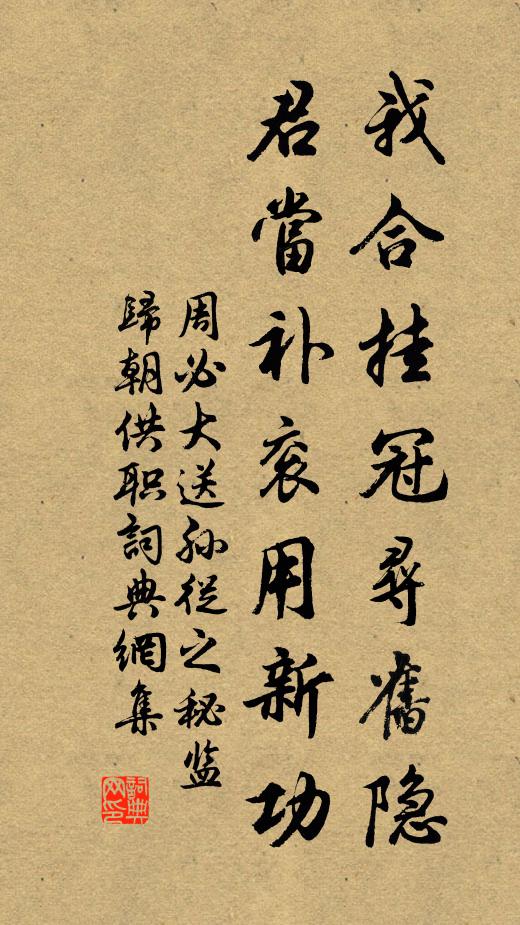 我合挂冠尋舊隐
君當补衮用新功
周必大送孙從之秘监
歸朝供职詞典網集
詞典
网印